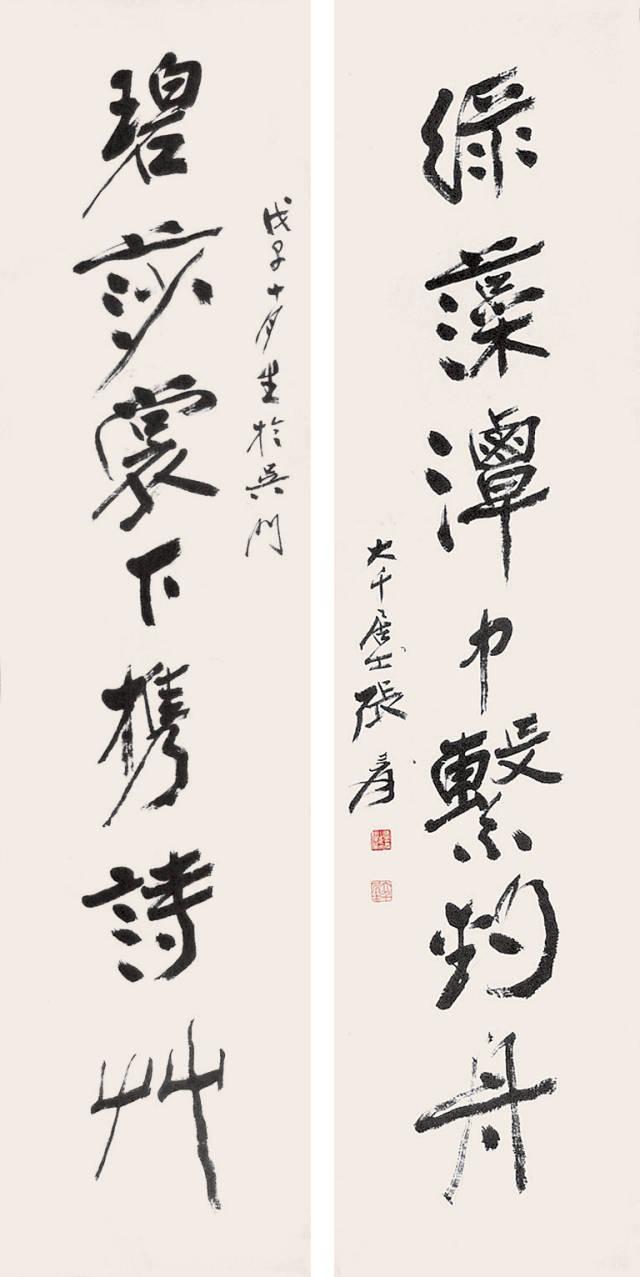 綠藻潭中繫釣舟
大千居士張爰
碧莎裳下携詩艸
戊子十月書於吳門